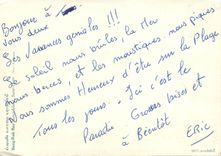 Bonjour à Tous
vous deux
Ses Vacances géniales !!!
Le Soleil nous brûle, la Mer
nous berce, et les moustiques nous piques
Nous sommes Heureux d'être sur la Plage
Tous les jours - Ici c'est le
Paradis Grosses bises et
à Bientôt
ERIC